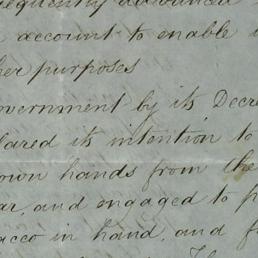 equently advanced
account to enable
her purposes
overnment by its Decre
lared its intention to
own hands from the
ar, and engaged to p
acco in hand, and f